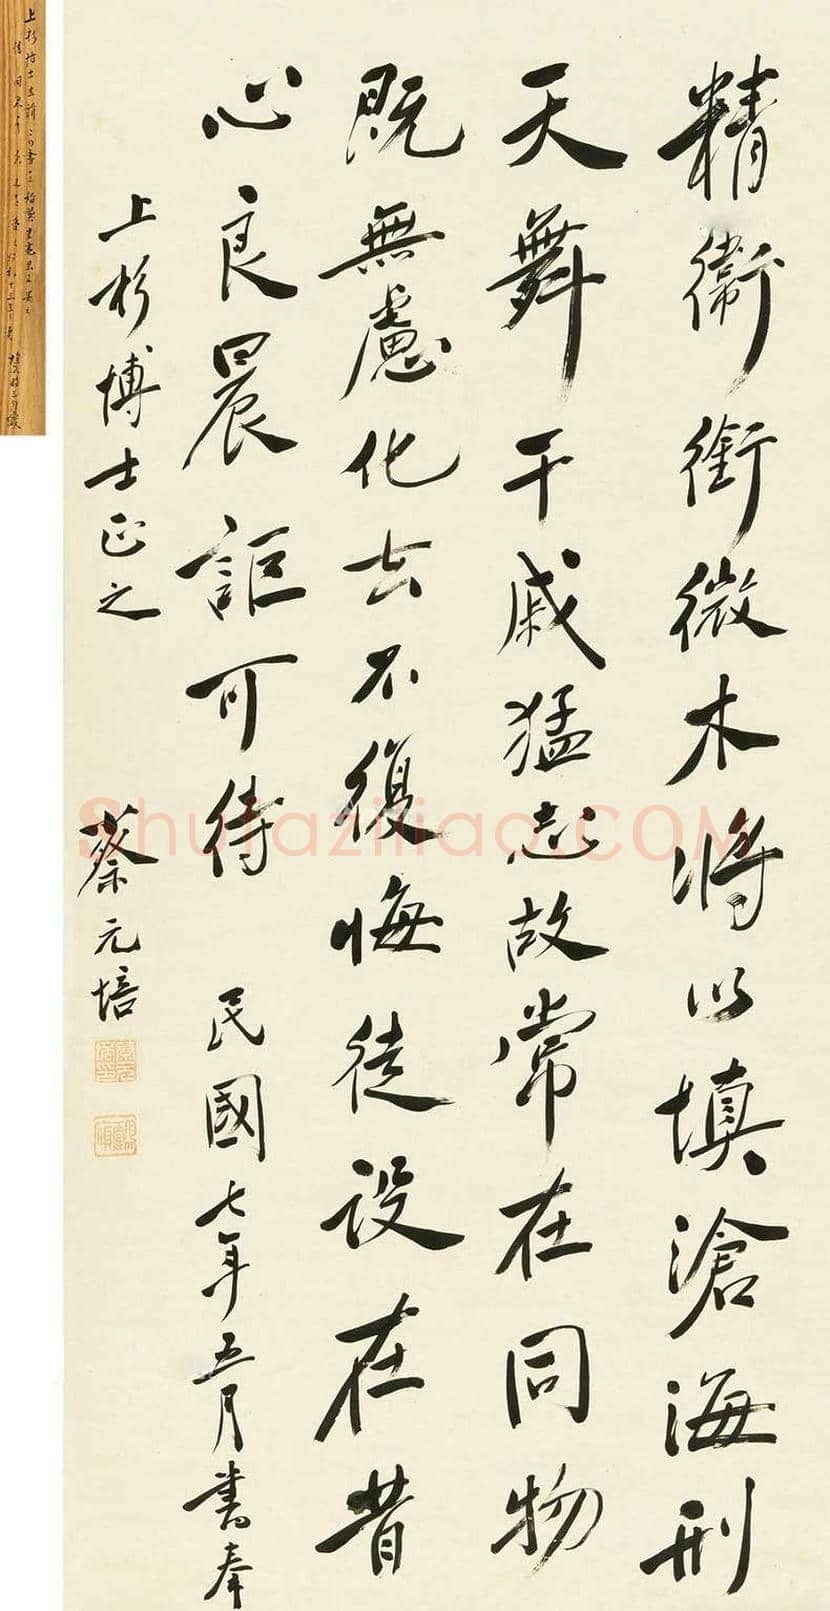 精衛銜微木將以填滄海刑
天舞干戚猛志故常在同物
既無慮化去不復悔徒設在昔
心良晨詎可待 民國七年五月書奉
上杉博士正之
蔡元培
Shufaziliao.COM